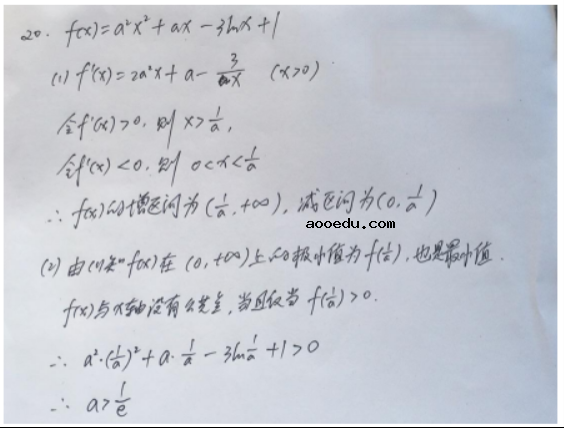 20. f(x)=a²x²+ax-3lnx+1
(1) f'(x)=2a²x+a-3/x (x>0)
令f'(x)>0. 则 x>1/a,
令f'(x)<0. 则 0<x<1/a
∴ f(x)的增区间为(1/a,+∞), 减区间为(0,1/a)
aooedu.com
(2) 由(1)知f(x)在(0,+∞)上的极小值为f(1/a), 也是最小值.
f(x)与x轴没有公共点, 当且仅当 f(1/a)>0.
∴ a²·(1/a)²+a·1/a-3ln1/a+1>0
∴ a>1/e